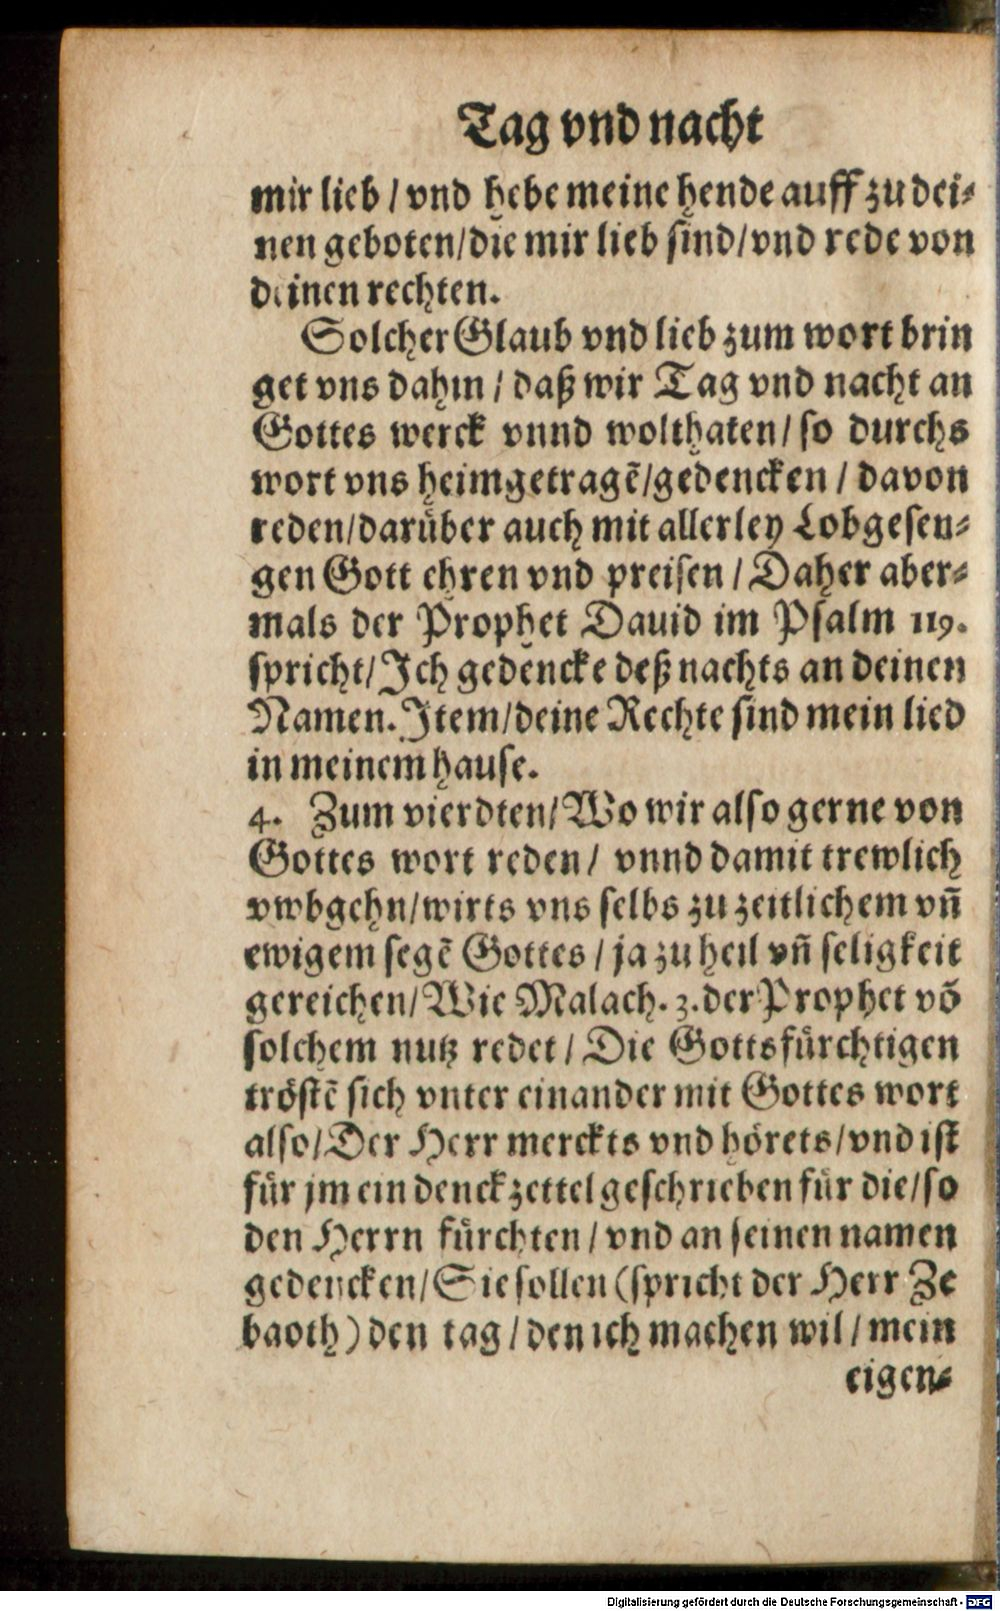 Tag vnd nacht
mir lieb / vnd hebe meine hende auff zu dei⸗
nen geboten/die mir lieb sind/vnd rede von
deinen rechten.
Solcher Glaub vnd lieb zum wort brin
get vns dahin / daß wir Tag vnd nacht an
Gottes werck vnnd wolthaten/ so durchs
wort vns heimgetragẽ/gedencken / davon
reden/darüber auch mit allerley Lobgesen⸗
gen Gott ehren vnd preisen / Daher aber⸗
mals der Prophet Dauid im Psalm 119.
spricht/Ich gedencke deß nachts an deinen
Namen. Item/deine Rechte sind mein lied
in meinem hause.
4. Zum vierdten/Wo wir also gerne von
Gottes wort reden/ vnnd damit trewlich
vwbgehn/wirts vns selbs zu zeitlichem vñ
ewigem segẽ Gottes / ja zu heil vñ seligkeit
gereichen/Wie Malach. 3. der Prophet võ
solchem nutz redet / Die Gottsfürchtigen
tröstẽ sich vnter einander mit Gottes wort
also/Der Herr merckts vnd hörets/vnd ist
für jm ein denckzettel geschrieben für die/so
den Herrn fürchten / vnd an seinen namen
gedencken/Sie sollen (spricht der Herr Ze
baoth) den tag / den ich machen wil / mein
eigen⸗
Digitalisierung gefördert durch die Deutsche Forschungsgemeinschaft - DFG